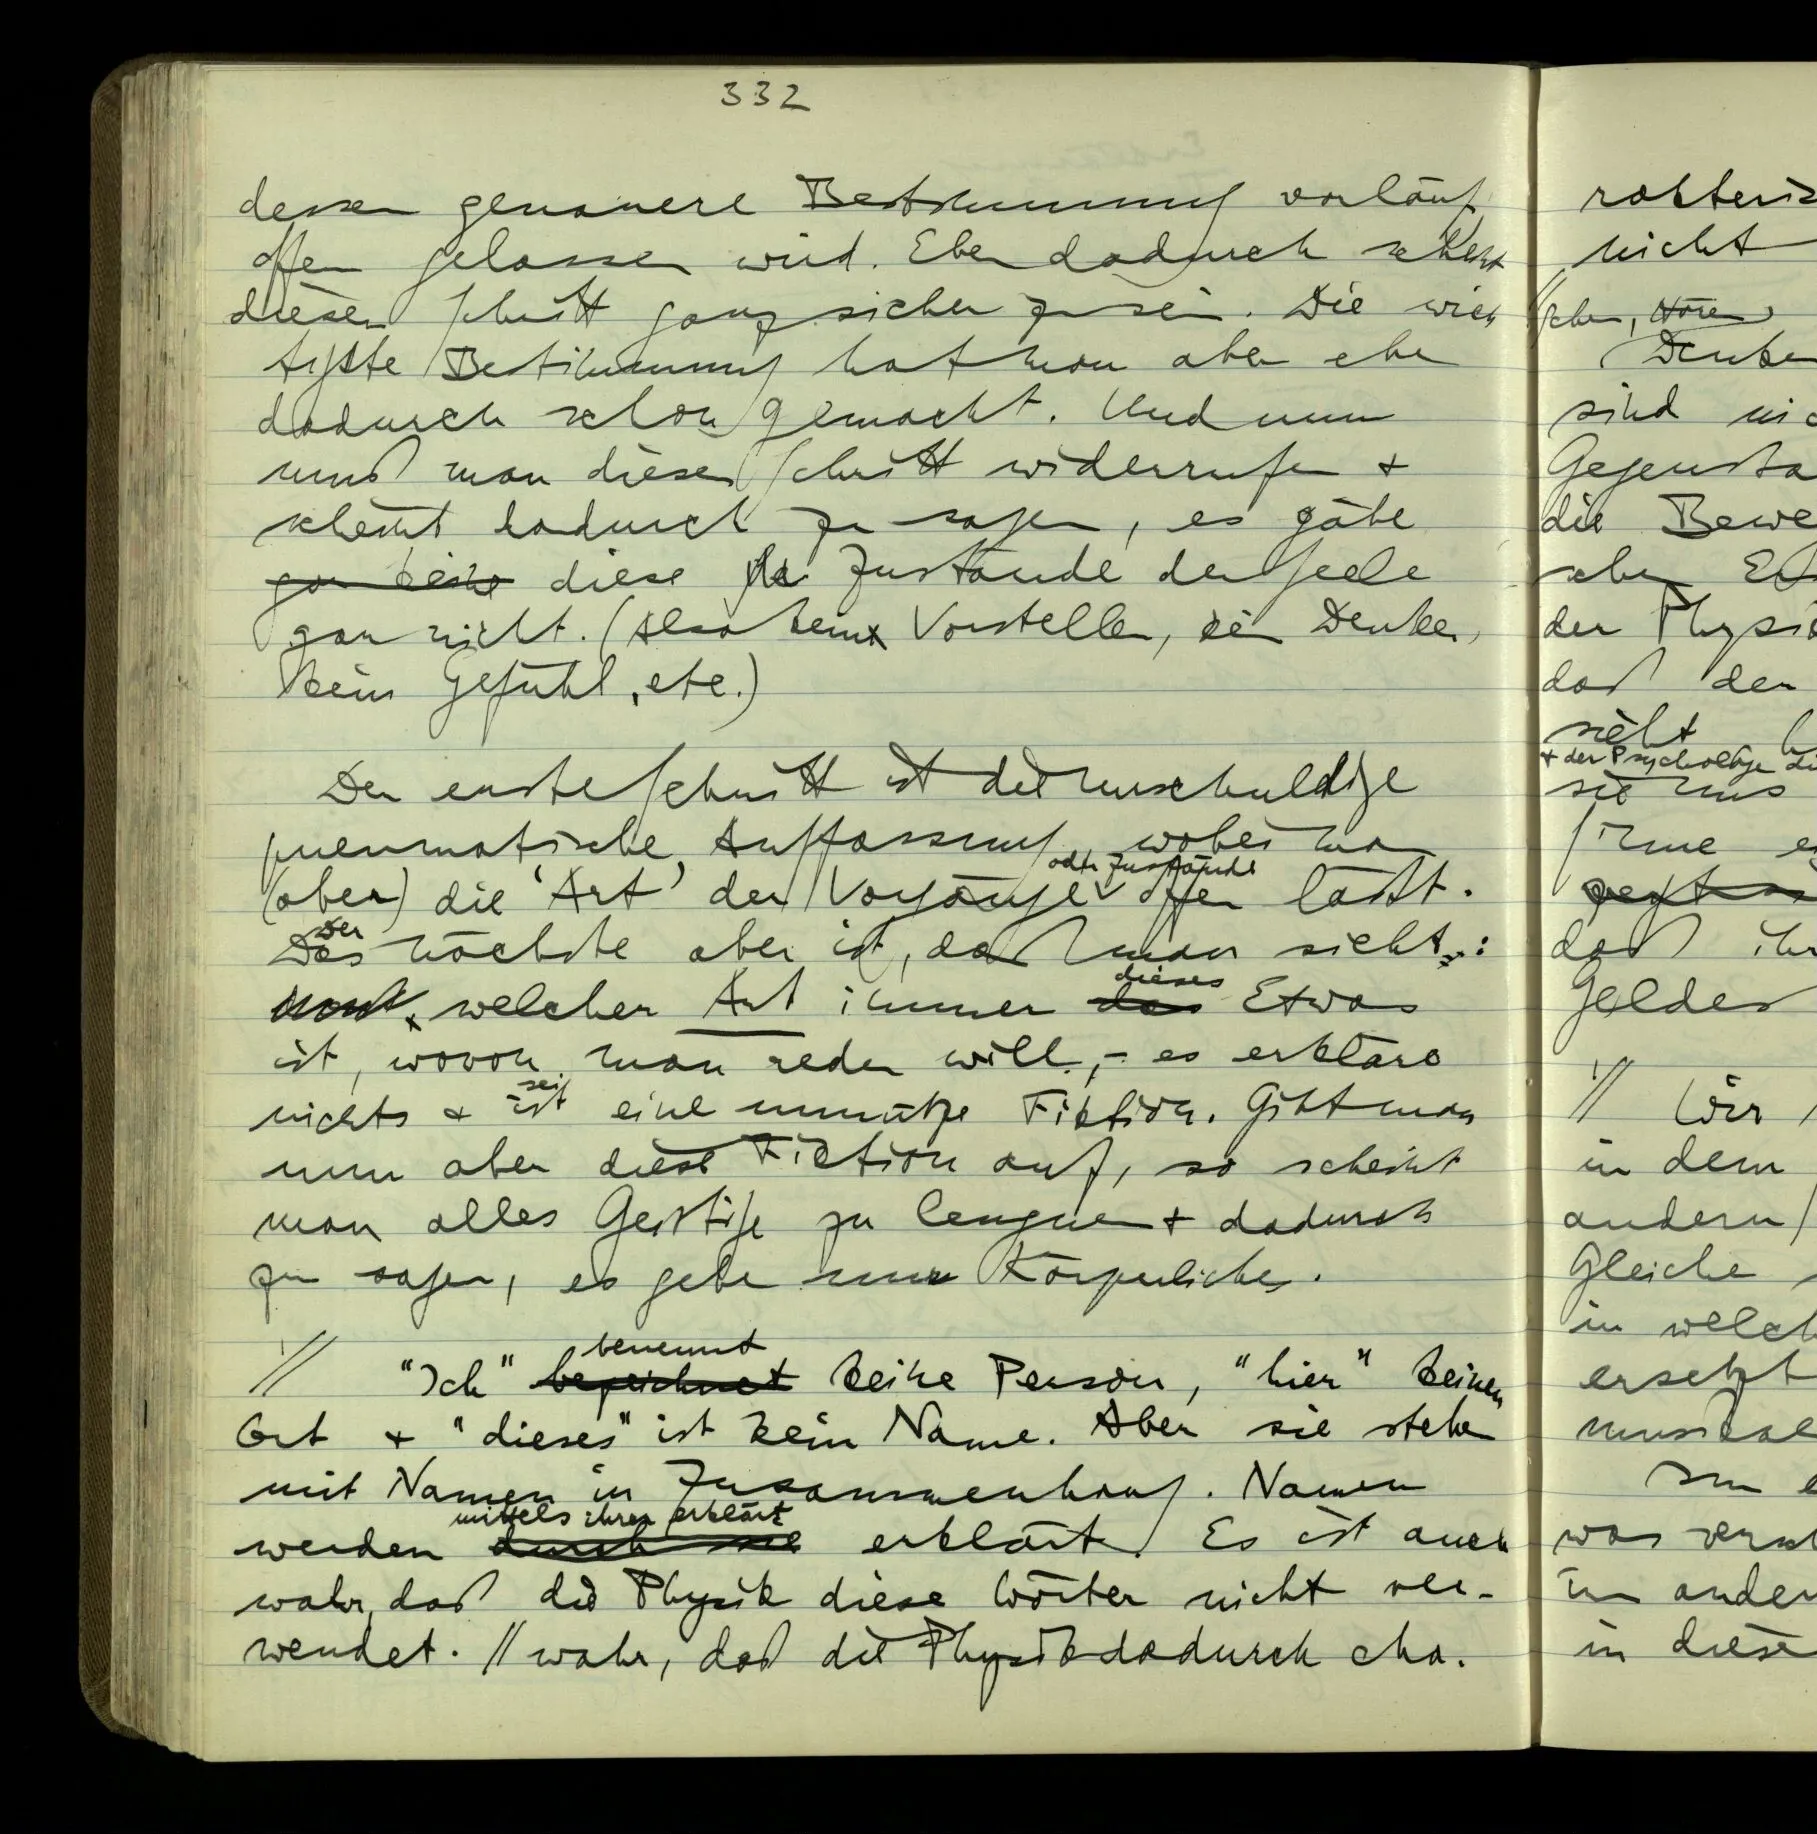 332
dessen genauere Bestimmung vorläuf
offen gelassen wird. Eben dadurch scheint
dieser Schritt ganz sicher zu sein. Die wich
tigste Bestimmung hat man aber eben
dadurch schon gemacht. Und nun
muß man diesen Schritt widerrufen &
scheint dadurch zu sagen, es gäbe
gar keine diese Zustände der Seele
gar nicht. (Also kein Vorstellen, kein Denken,
kein Gefühl, etc.)
Der erste Schritt ist die unschuldige
pneumatische Auffassung, wobei man
oder Zustände
(aber) die 'Art' der Vorgänge offen läßt.
Der
Das nächste aber ist, daß man sieht:
dieses
welcher Art immer das Etwas
ist, wovon man reden will, – es erkläre
sei
nichts & ist eine unnütze Fiktion. Gibt man
nun aber diese Fiktion auf, so scheint
man alles Geistige zu leugnen & dadurch
zu sagen, es gebe nur Körperliches.
benennt
// "Ich" bezeichnet keine Person, "hier" keinen
Ort & "dieses" ist kein Name. Aber sie stehen
mit Namen in Zusammenhang. Namen
mittels ihrer erklärt
werden durch sie erklärt. Es ist auch
wahr, daß die Physik diese Wörter nicht ver-
wendet. // wahr, daß die Physik dadurch cha-
nicht
Denken
sind nic
Gegensta
die Bewe
der Physi
daß der
sieht
& der Psychologe di
sie uns
daß ihr
Geldes
// Wir
in dem
andern
Gleiche
in welch
ersetzt
was
in ander
in diese